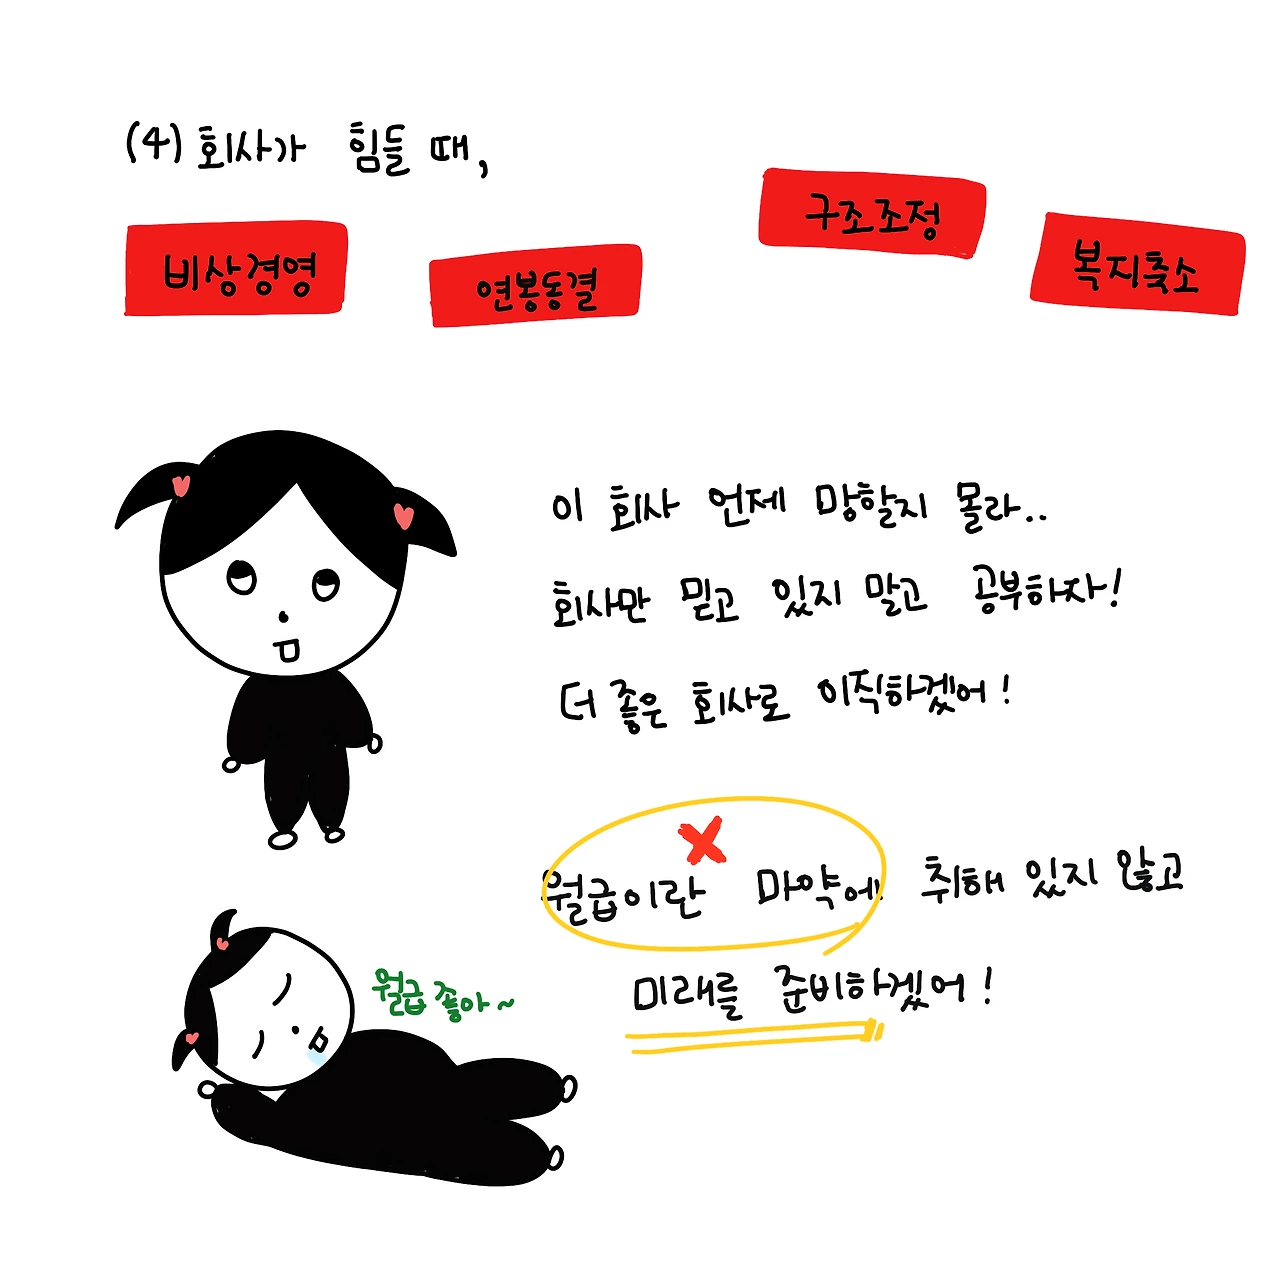 (4) 회사가 힘들 때,
비상경영
연봉동결
구조조정
복지축소
이 회사 언제 망할지 몰라..
회사만 믿고 있지 말고 공부하자!
더 좋은 회사로 이직하겠어!
월급이란 마약에 취해 있지 않고
미래를 준비하겠어!
월급 좋아~